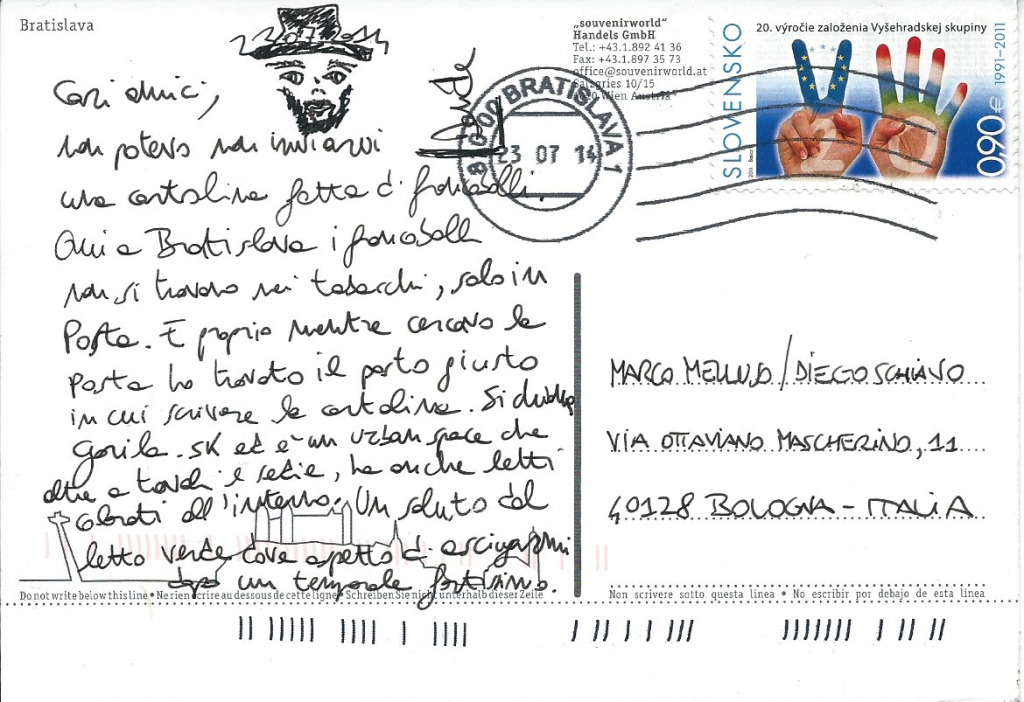 Bratislava
22072014
Cari amici,
non potevo non inviarvi
una cartolina fatta di francobolli.
Qui a Bratislava i francobolli
non si trovano nei tabacchi, solo in
Posta. E proprio mentre cercavo la
Posta ho trovato il posto giusto
in cui scrivere la cartolina. Si
Gorila.sk ed è un urban space che
oltre a tavoli e sedie, ha anche letti
colorati all'interno. Un saluto dal
letto verde dove aspetto di asciugarmi
dopo un temporale fortissimo.
Do not write below this line • Ne rien écrire au dessous de cette ligne • Schreiben Sie nicht unterhalb dieser Zeile
„souvenirworld"
Handels GmbH
Tel.: +43.1.892 41 36
Fax: +43.1.897 35 73
office@souvenirworld.at
Salzgries 10/15
Wien Austria
BRATISLAVA 1
23 07 14
20. výročie založenia Vyšehradskej skupiny
SLOVENSKO
1991-2011
0,90 €
2011
MARCO MELLUSO/DIEGO SCHIAVO
VIA OTTAVIANO MASCHERINO, 11
40128 BOLOGNA - ITALIA
Non scrivere sotto questa linea • No escribir por debajo de esta linea